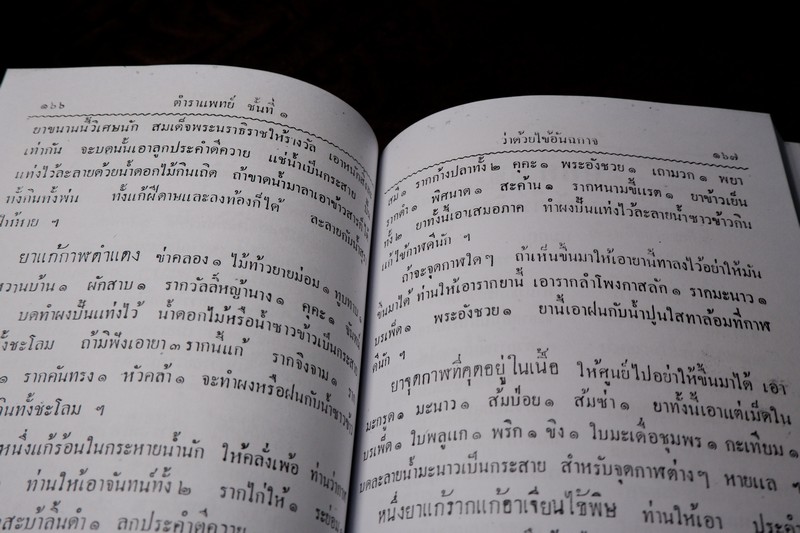 ๑๖๖ ตำราแพทย์ ชั้นที่ ๑
ยาขนานนี้วิเศษนัก สมเด็จพระนราธิราชให้รางวัล เอาหนัก
เท่ากัน จะบดนั้นเอาลูกประคำดีควาย แช่น้ำเป็นกระสาย ปั้น
แท่งไว้ละลายด้วยน้ำดอกไม้กินเถิด ถ้าขาดน้ำมาลาเอาข้าวสาร
ทั้งกินทั้งพ่น ทั้งแก้ฝีดาษและลงท้องก็ได้ ละลายกับน้ำ
ฯ
ยาแก้กาฬดำแดง ข่าคลอง ๑ ไม้ท้าวยายม่อม ๑
หวานบ้าน ๑ ผักสาบ ๑ รากวัลลิ์หญ้านาง ๑ คุคะ ๑
บดทำผงปั้นแท่งไว้ น้ำดอกไม้หรือน้ำซาวข้าวเป็นกระสาย
ทั้งชะโลม ถ้ามิฟังเอายา ๓ รากนี้แก้ รากจิงจาม ๑ ราก
๑ รากคันทรง ๑ หัวคล้า ๑ จะทำผงหรือฝนกับน้ำซาวข้าว
กินทั้งชะโลม ฯ
หนึ่งแก้ร้อนในกระหายน้ำนัก ให้คลั่งเพ้อ ท่านว่ากาฬ
ท่านให้เอาจันทน์ทั้ง ๒ รากไก่ให้ ๑ ระย่อม ๑
สะบ้าลิ้นดำ ๑ ลูกประคำดีควาย
ว่าด้วยไข้อันฉกาจ ๑๖๗
สมี ๑ รากก้างปลาทั้ง ๒ คุคะ ๑ พระอังชวย ๑ เถามวก ๑ พยา
รากดำ ๑ พิศนาด ๑ สะค้าน ๑ รากหนามขี้แรด ๑ ยาข้าวเย็น
ทั้ง ๒ ยาทั้งนี้เอาเสมอภาค ทำผงปั้นแท่งไว้ละลายน้ำซาวข้าวกิน
แก้ไข้กาฬดีนัก ฯ
ถ้าจะจุดกาฬใด ๆ ถ้าเห็นขึ้นมาให้เอายานี้ทาลงไว้อย่าให้มัน
ขึ้นมาได้ ท่านให้เอารากยานี้ เอารากลำโพงกาสลัก ๑ รากมะนาว ๑
บรเพ็ด ๑ พระอังชวย ๑ ยานี้เอาฝนกับน้ำปูนใสทาล้อมที่กาฬ
ดีนัก ฯ
ยาจุดกาฬที่คุดอยู่ในเนื้อ ให้ศูนย์ไปอย่าให้ขึ้นมาได้ เอา
มะกรูด ๑ มะนาว ๑ ส้มป่อย ๑ ส้มซ่า ๑ ยาทั้งนี้เอาแต่เม็ดใน
บรเพ็ด ๑ ใบพลูแก ๑ พริก ๑ ขิง ๑ ใบมะเดื่อชุมพร ๑ กะเทียม ๑
บดละลายน้ำมะนาวเป็นกระสาย สำหรับจุดกาฬต่างๆ หายแล ฯ
หนึ่งยาแก้รากแก้อาเจียนไข้พิษ ท่านให้เอา ประคำ